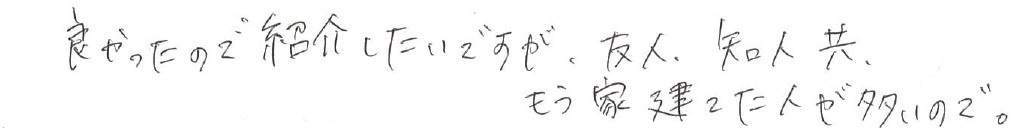 良かったので紹介したいですが、友人、知人共、
もう家建てた人が多いので。